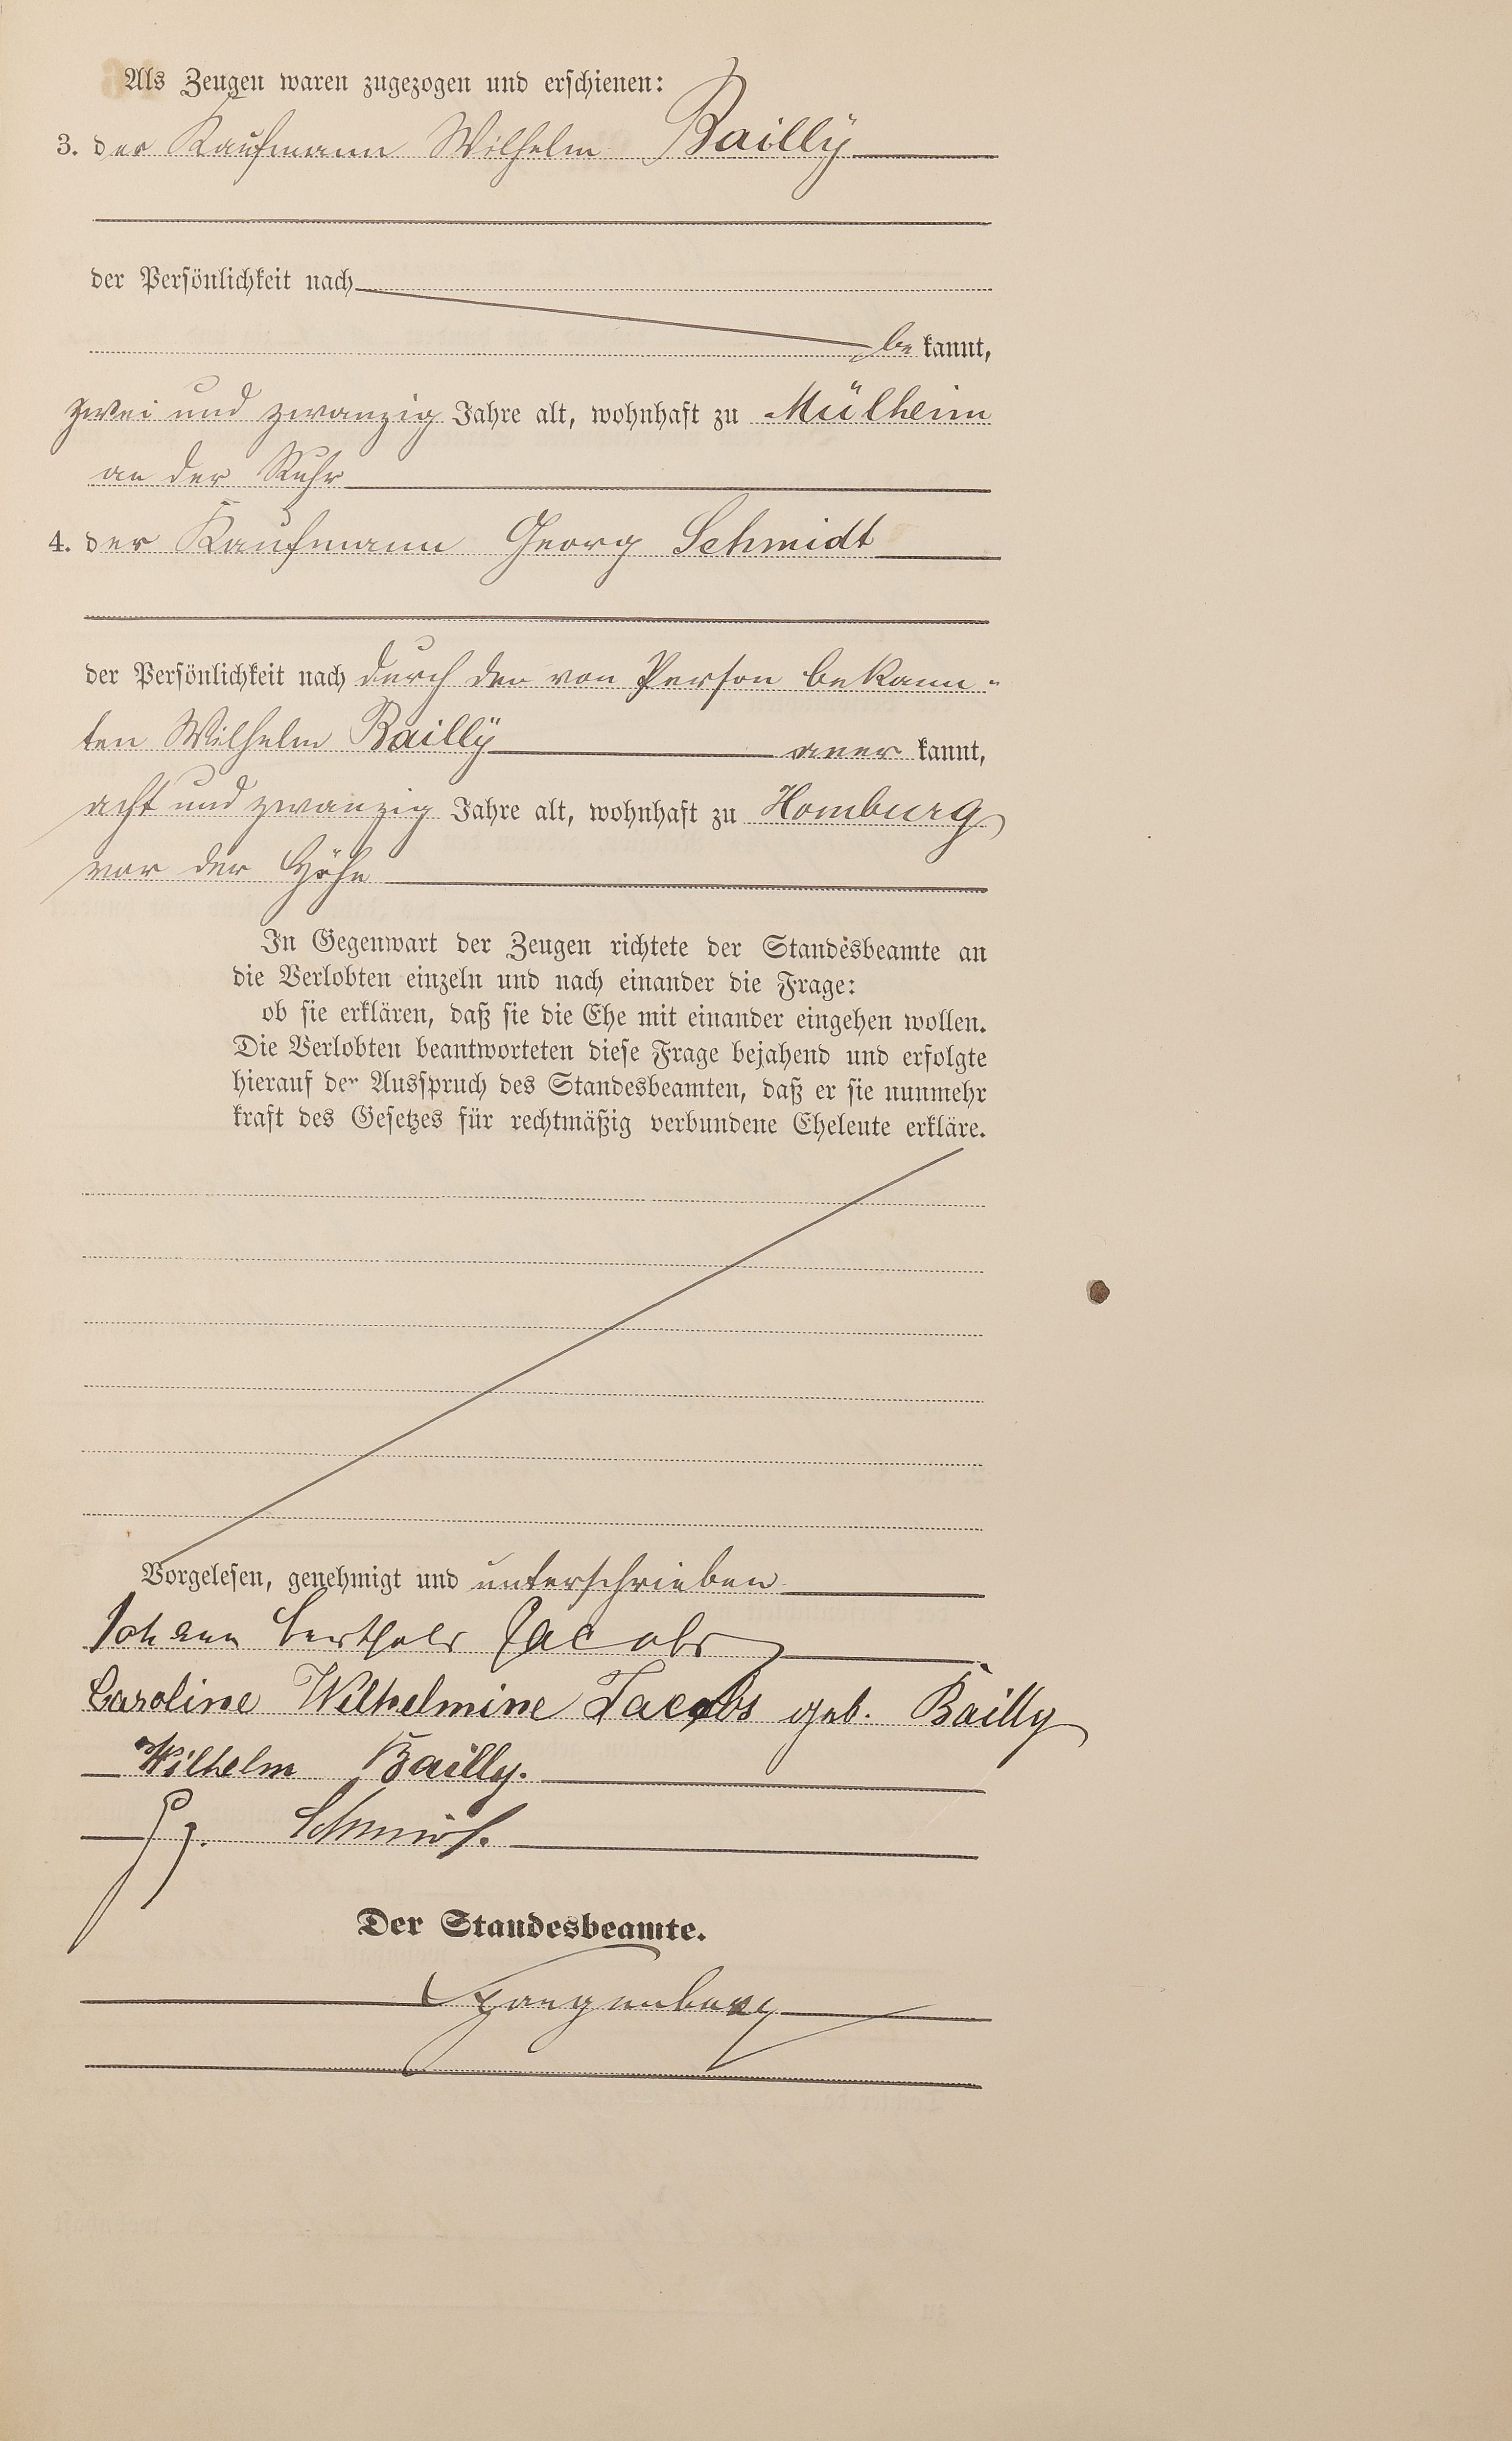 Als Zeugen waren zugezogen und erschienen:
3. der Kaufmann Wilhelm Bailly
der Persönlichkeit nach
be kannt,
zwei und zwanzig Jahre alt, wohnhaft zu Mülheim
an der Ruhr
4. der Kaufmann Georg Schmidt
der Persönlichkeit nach durch den von Person bekann-
ten Wilhelm Bailly aner kannt,
acht und zwanzig Jahre alt, wohnhaft zu Homburg
vor der Höhe
In Gegenwart der Zeugen richtete der Standesbeamte an
die Verlobten einzeln und nach einander die Frage:
ob sie erklären, daß sie die Ehe mit einander eingehen wollen.
Die Verlobten beantworteten diese Frage bejahend und erfolgte
hierauf der Ausspruch des Standesbeamten, daß er sie nunmehr
kraft des Gesetzes für rechtmäßig verbundene Eheleute erkläre.
Vorgelesen, genehmigt und unterschrieben
Johann Berthold Jacobs
Caroline Wilhelmine Jacobs geb. Bailly
Wilhelm Bailly.
Gg. Schmidt.
Der Standesbeamte.